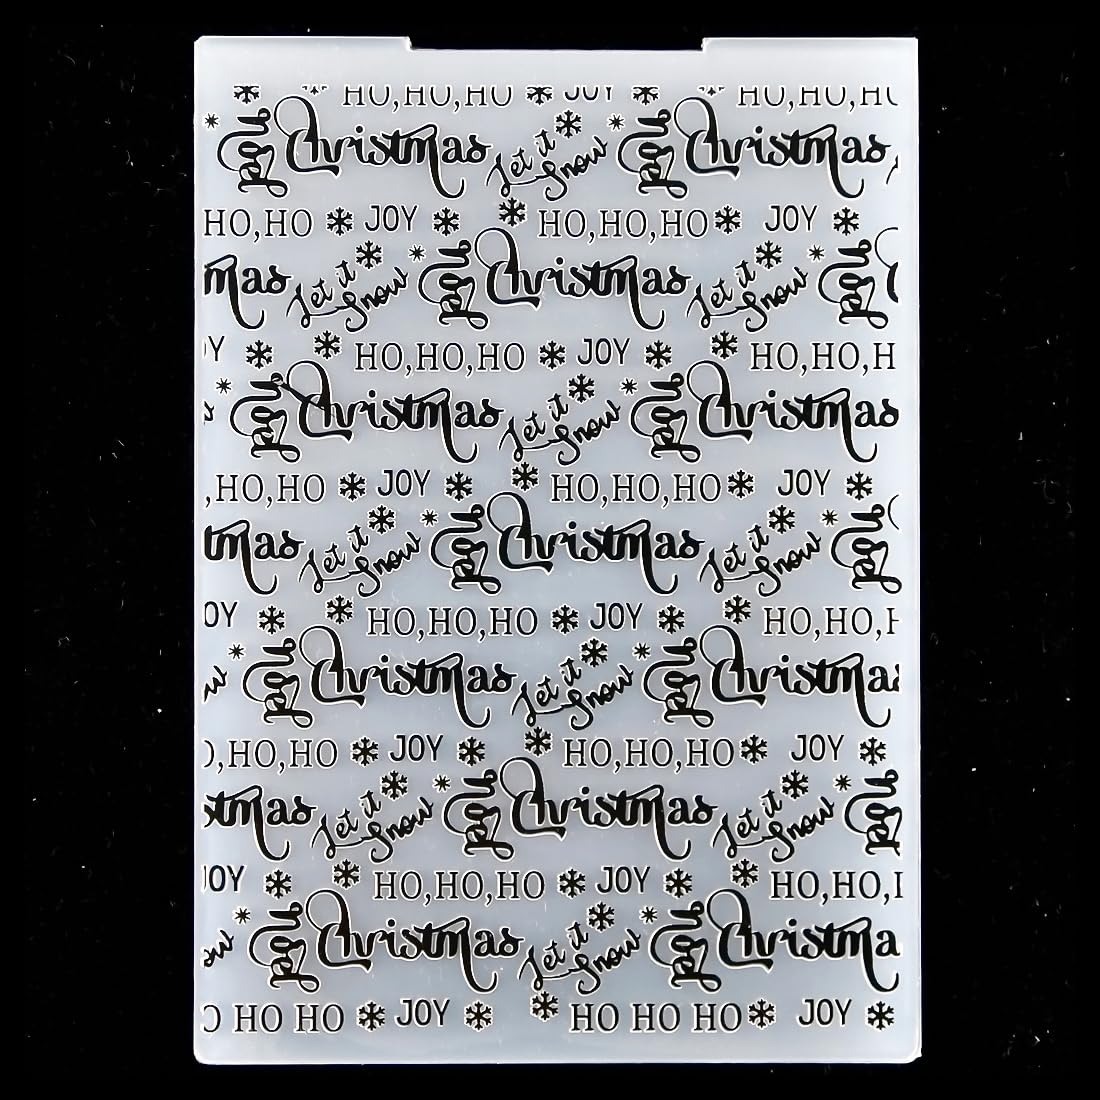 HO,HO,HO JOY HO,HO,HO
Noel Christmas Let it Snow Noel Christmas
HO,HO JOY HO,HO,HO JOY
mas Let it Snow Noel Christmas Let it Snow Noel
OY HO,HO,HO JOY HO,HO,H
Noel Christmas Let it Snow Noel Christmas
,HO,HO JOY HO,HO,HO JOY
tmas Let it Snow Noel Christmas Let it Snow Noel
OY HO,HO,HO JOY HO,HO,H
w Noel Christmas Let it Snow Noel Christmas
O,HO,HO JOY HO,HO,HO JOY
stmas Let it Snow Noel Christmas Let it Snow Noel
JOY HO,HO,HO JOY HO,HO,H
ow Noel Christmas Let it Snow Noel Christma
O HO HO JOY HO HO HO JOY